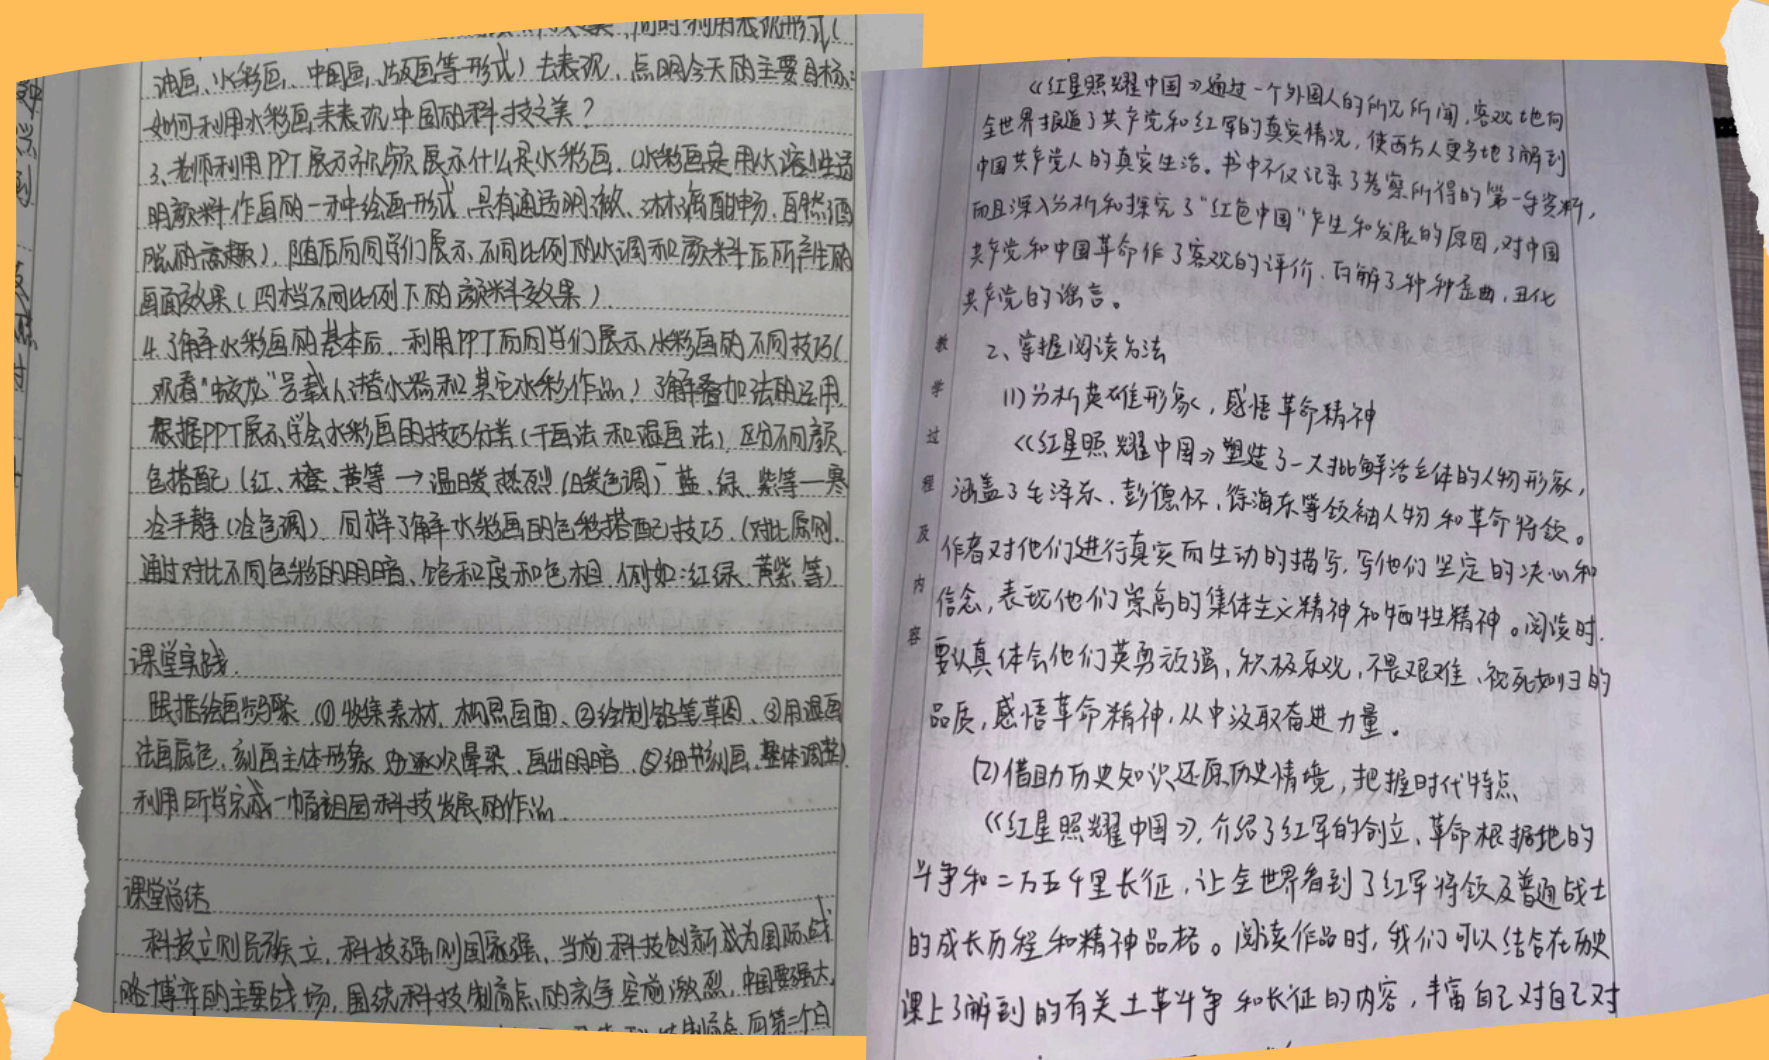 同时利用表现形式(
油画、水彩画、中国画、版画等形式)去表现,点明今天的主要目标:
如何利用水彩画来表现中国的科技之美?
3、老师利用PPT展示视频展示什么是水彩画.(水彩画是用水溶性透
明颜料作画的一种绘画形式,具有通透明澈、淋漓酣畅、自然洒
脱的意趣).随后向同学们展示不同比例的水调和颜料后所产生的
画面效果(四档不同比例下的颜料效果).
4.了解水彩画的基本后,利用PPT向同学们展示水彩画的不同技巧(
观看"蛟龙"号载人潜水器和其它水彩作品)了解叠加法的运用
根据PPT展示,学会水彩画的技巧分类(干画法和湿画法),区分不同颜
色搭配(红、橙、黄等→温暖热烈(暖色调) 蓝、绿、紫等—寒
冷平静(冷色调) 同样了解水彩画的色彩搭配技巧.(对比原则.
通过对比不同色彩的明暗、饱和度和色相.例如:红绿、黄紫等)
课堂实践.
跟据绘画步骤 ①收集素材,构思画面、②绘制铅笔草图、③用湿画
法画底色,刻画主体形象 ④逐次晕染,画出明暗 ⑤细节刻画,整体调整)
利用所学完成一幅祖国科技发展的作品.
课堂总结
科技立则民族立,科技强则国家强、当前科技创新成为国际战
略博弈的主要战场,围绕科技制高点的竞争空前激烈,中国要强大,
制高点,向第二个百
《红星照耀中国》通过一个外国人的所见所闻,客观地向
全世界报道了共产党和红军的真实情况,使西方人更多地了解到
中国共产党人的真实生活。书中不仅记录了考察所得的第一手资料,
而且深入分析和探究了"红色中国"产生和发展的原因,对中国
共产党和中国革命作了客观的评价,瓦解了种种歪曲,丑化
共产党的谣言。
2、掌握阅读方法
(1)分析英雄形象,感悟革命精神
《红星照耀中国》塑造了一大批鲜活主体的人物形象,
涵盖了毛泽东、彭德怀、徐海东等领袖人物和革命将领。
作者对他们进行真实而生动的描写,写他们坚定的决心和
信念,表现他们崇高的集体主义精神和牺牲精神。阅读时.
要认真体会他们英勇顽强,积极乐观,不畏艰难、视死如归的
品质,感悟革命精神,从中汲取奋进力量。
(2)借助历史知识还原历史情境,把握时代特点
《红星照耀中国》,介绍了红军的创立、革命根据地的
斗争和二万五千里长征,让全世界看到了红军将领及普通战士
的成长历程和精神品格。阅读作品时,我们可以结合在历史
课上了解到的有关土革斗争和长征的内容,丰富自己对自己对
教学过程及内容